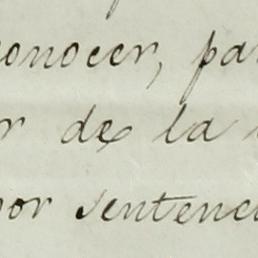 conocer, par
r de la
por sentenci